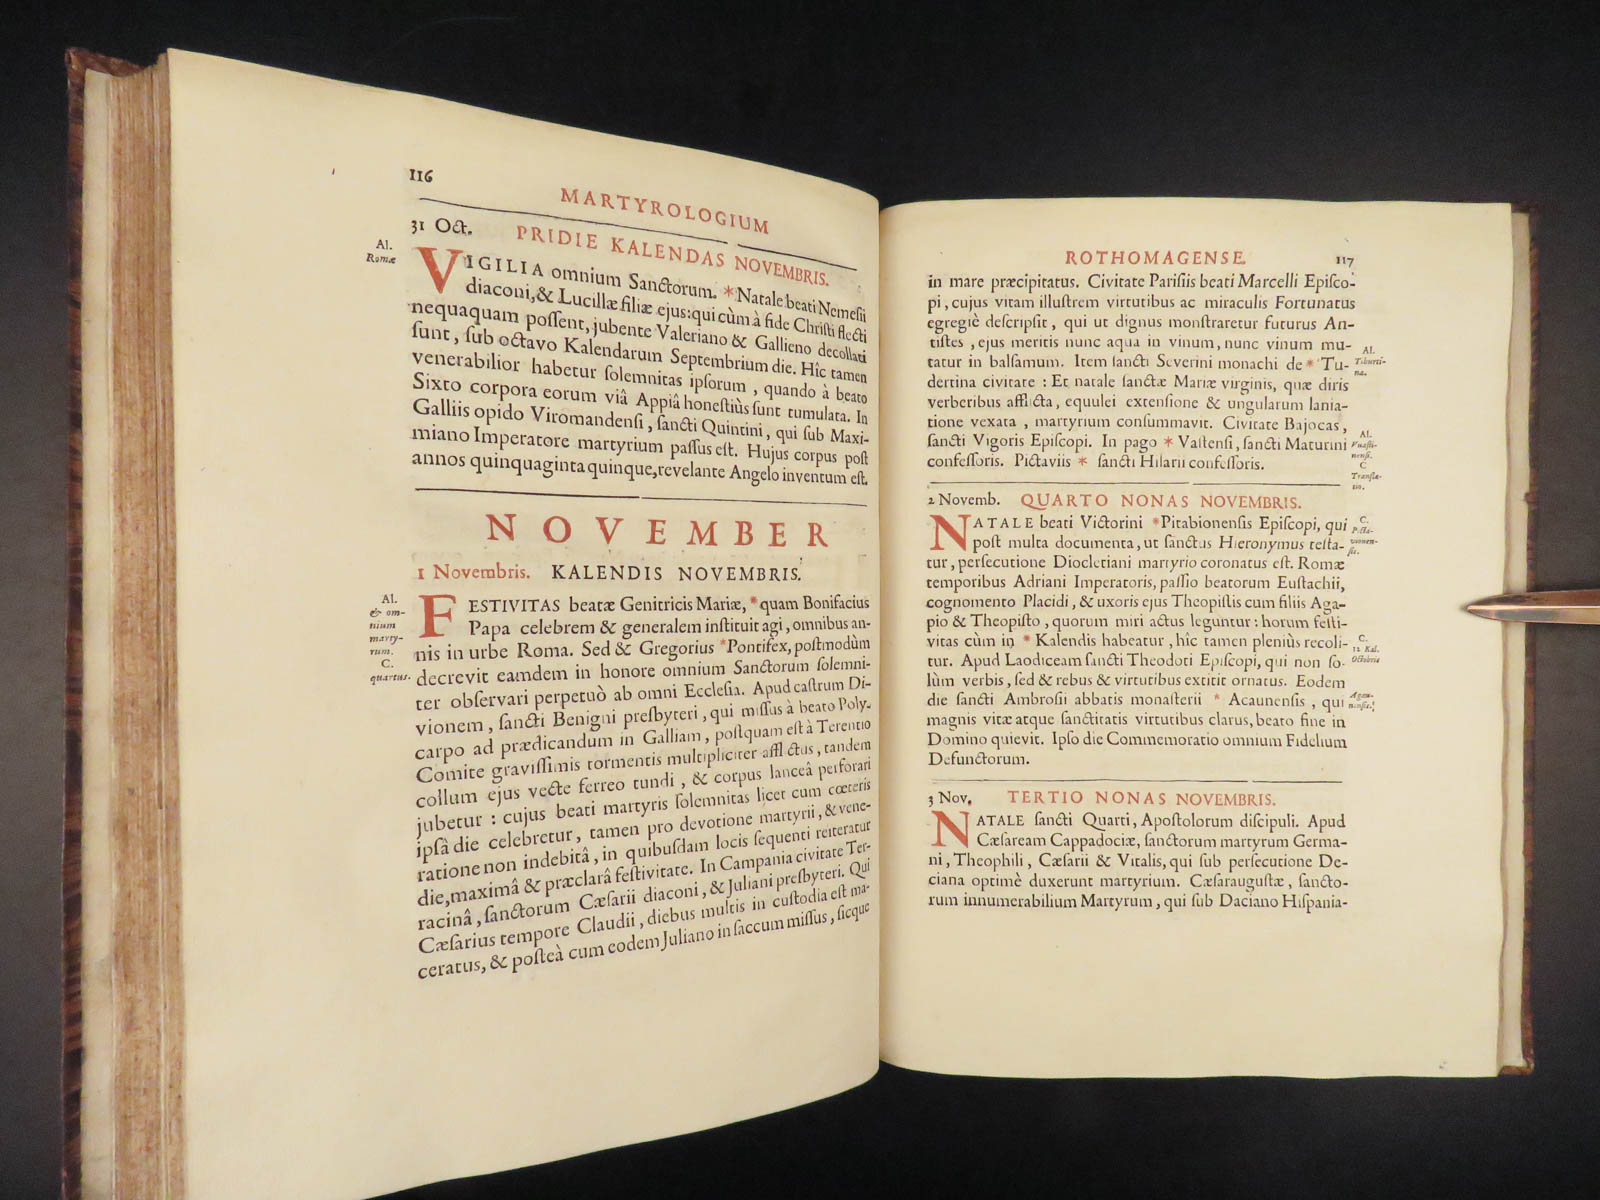 116
MARTYROLOGIUM
31 Oct. PRIDIE KALENDAS NOVEMBRIS.
Al.
Romæ
VIGILIA omnium Sanctorum. *Natale beati Nemeſii
diaconi, & Lucillæ filiæ ejus: qui cùm à fide Chriſti flecti
nequaquam poſſent, jubente Valeriano & Gallieno decollati
ſunt, ſub octavo Kalendarum Septembrium die. Hîc tamen
venerabilior habetur ſolemnitas ipſorum, quando à beato
Sixto corpora eorum viâ Appiâ honeſtiùs ſunt tumulata. In
Galliis opido Viromandenſi, ſancti Quintini, qui ſub Maxi-
miano Imperatore martyrium paſſus eſt. Hujus corpus poſt
annos quinquaginta quinque, revelante Angelo inventum eſt.
NOVEMBER
1 Novembris. KALENDIS NOVEMBRIS.
Al.
& om-
nium
marty-
rum.
C.
quartus.
FESTIVITAS beatæ Genitricis Mariæ, *quam Bonifacius
Papa celebrem & generalem inſtituit agi, omnibus an-
nis in urbe Roma. Sed & Gregorius *Pontifex, poſtmodùm
decrevit eamdem in honore omnium Sanctorum ſolemni-
ter obſervari perpetuò ab omni Eccleſia. Apud caſtrum Di-
vionem, ſancti Benigni preſbyteri, qui miſſus à beato Poly-
carpo ad prædicandum in Galliam, poſtquam eſt à Terentio
Comite graviſſimis tormentis multipliciter affl ctus, tandem
collum ejus vecte ferreo tundi, & corpus lanceâ perforari
jubetur: cujus beati martyris ſolemnitas licet cum cœteris
ipſâ die celebretur, tamen pro devotione martyrii, & vene-
ratione non indebitâ, in quibuſdam locis ſequenti reiteratur
die, maximâ & præclarâ feſtivitate. In Campania civitate Ter-
racinâ, ſanctorum Cæſarii diaconi, & Juliani preſbyteri. Qui
Cæſarius tempore Claudii, diebus multis in cuſtodia eſt ma-
ceratus, & poſteà cum eodem Juliano in ſaccum miſſus, ſicque
ROTHOMAGENSE. 117
in mare præcipitatus. Civitate Pariſiis beati Marcelli Epiſco-
pi, cujus vitam illuſtrem virtutibus ac miraculis Fortunatus
egregiè deſcripſit, qui ut dignus monſtraretur futurus An-
tiſtes, ejus meritis nunc aqua in vinum, nunc vinum mu-
tatur in balſamum. Item ſancti Severini monachi de *Tu-
dertina civitate: Et natale ſanctæ Mariæ virginis, quæ diris
verberibus afflicta, equulei extenſione & ungularum lania-
tione vexata, martyrium conſummavit. Civitate Bajocas,
ſancti Vigoris Epiſcopi. In pago * Vaſtenſi, ſancti Maturini
confeſſoris. Pictaviis * ſancti Hilarii confeſſoris.
Al.
Tiburti-
na.
Al.
C
Tranſla-
tio.
2 Novemb. QUARTO NONAS NOVEMBRIS.
NATALE beati Victorini *Pitabionenſis Epiſcopi, qui
poſt multa documenta, ut ſanctus Hieronymus teſta-
tur, perſecutione Diocletiani martyrio coronatus eſt. Romæ
temporibus Adriani Imperatoris, paſſio beatorum Euſtachii,
cognomento Placidi, & uxoris ejus Theopiſtis cum filiis Aga-
pio & Theopiſto, quorum miri actus leguntur: horum feſti-
vitas cùm in * Kalendis habeatur, hîc tamen pleniùs recoli-
tur. Apud Laodiceam ſancti Theodoti Epiſcopi, qui non ſo-
lùm verbis, ſed & rebus & virtutibus extitit ornatus. Eodem
die ſancti Ambroſii abbatis monaſterii * Acaunenſis, qui
magnis vitæ atque ſanctitatis virtutibus clarus, beato fine in
Domino quievit. Ipſo die Commemoratio omnium Fidelium
Defunctorum.
C.
C.
12 Kal.
Octobris
3 Nov. TERTIO NONAS NOVEMBRIS.
NATALE ſancti Quarti, Apoſtolorum diſcipuli. Apud
Cæſaream Cappadociæ, ſanctorum martyrum Germa-
ni, Theophili, Cæſarii & Vitalis, qui ſub perſecutione De-
ciana optimè duxerunt martyrium. Cæſarauguſtæ, ſancto-
rum innumerabilium Martyrum, qui ſub Daciano Hiſpania-